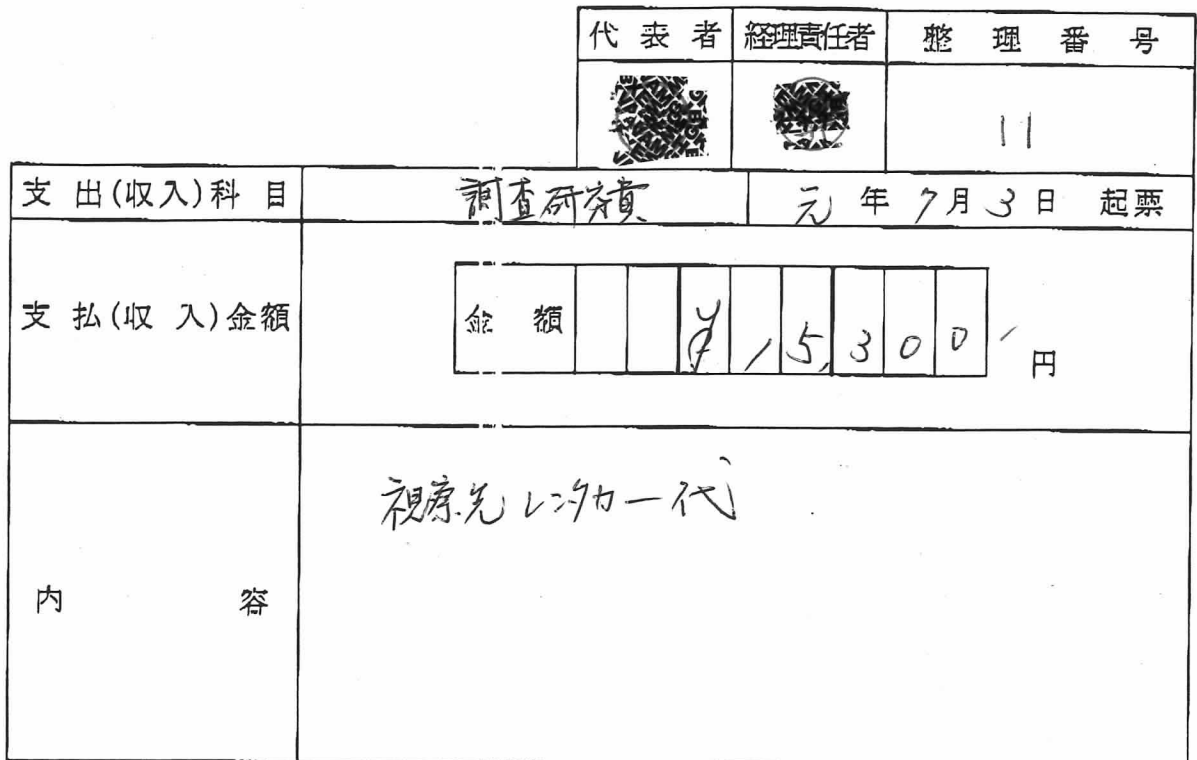 代表者 経理責任者 整理番号
11
支出(収入)科目 調査研究費 元年7月3日 起票
支払(収入)金額 金額 ¥15,300 円
視察先レンタカー代
内容